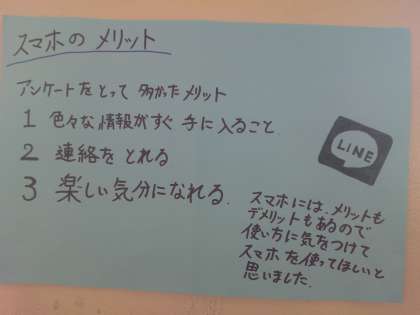 スマホの メリット
アンケートをとって 多かったメリット
1 色々な情報がすぐ手に入ること
2 連絡をとれる
3 楽しい気分になれる.
LINE
スマホには、メリットも
デメリットもあるので
使い方に気をつけて
スマホを使ってほしいと
思いました.